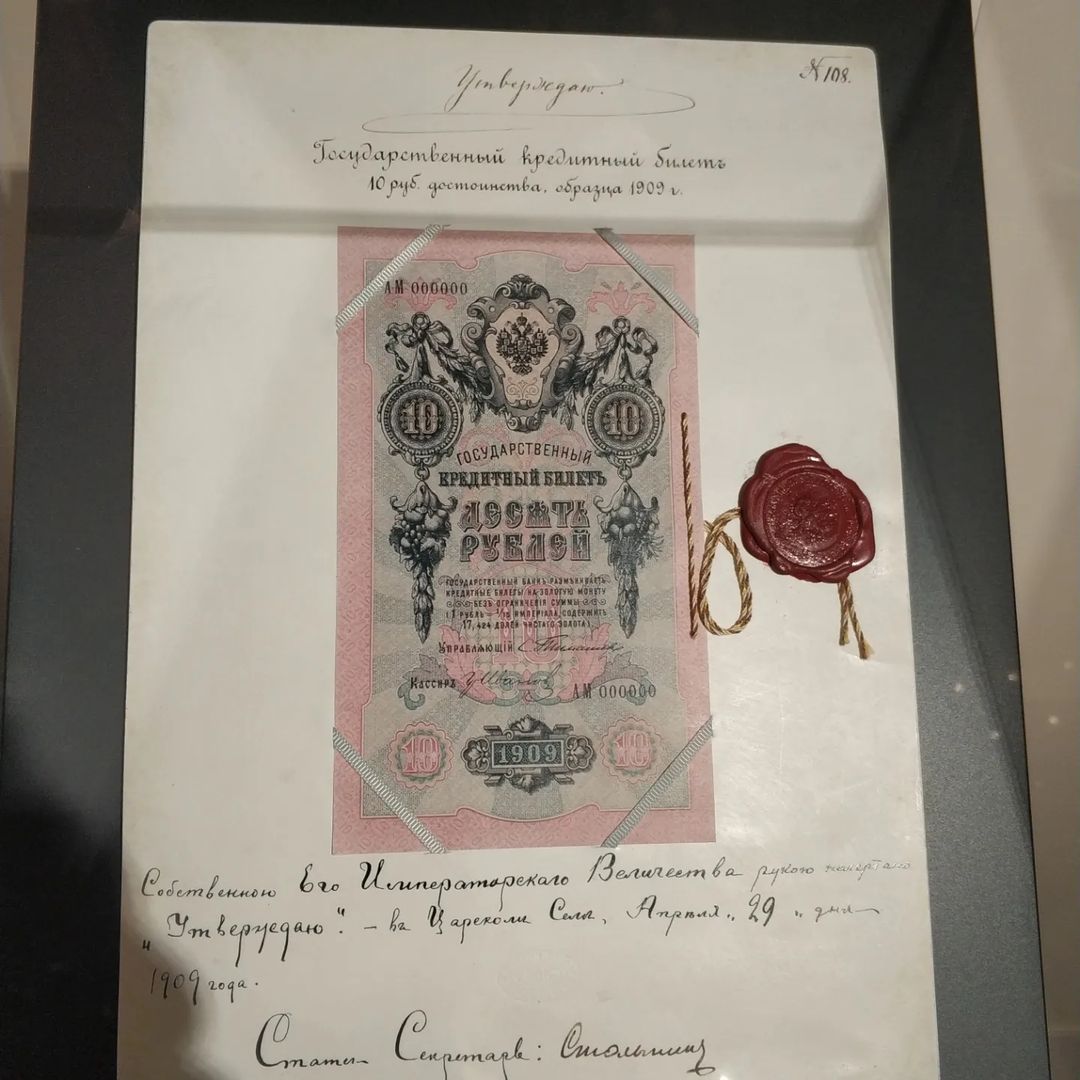 Утверждаю.
№ 108.
Государственный кредитный билетъ
10 руб. достоинства, образца 1909 г.
АМ 000000
10 10
ГОСУДАРСТВЕННЫЙ
КРЕДИТНЫЙ БИЛЕТЪ
ДЕСЯТЬ
РУБЛЕЙ
ГОСУДАРСТВЕННЫЙ БАНКЪ РАЗМѢНИВАЕТЪ
КРЕДИТНЫЕ БИЛЕТЫ НА ЗОЛОТУЮ МОНЕТУ
БЕЗЪ ОГРАНИЧЕНІЯ СУММЫ
(1 РУБЛЬ = 1/15 ИМПЕРІАЛА, СОДЕРЖИТЪ
17,424 ДОЛЕЙ ЧИСТАГО ЗОЛОТА).
10
Управляющій С. Тимашев
Кассиръ ГИванов
АМ 000000
10 1909 10
Собственною Его Императорскаго Величества рукою начертано
„Утверждаю". – въ Царскомъ Селѣ, Апрѣля „29" дня
1909 года.
Статсъ-Секретарь: Столыпинъ